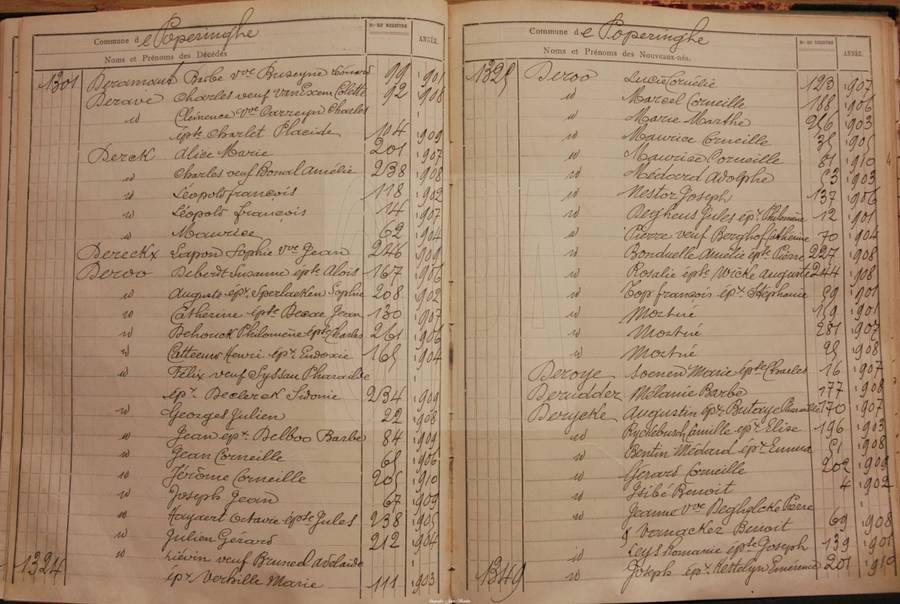 Commune de Poperinghe
Noms et Prénoms des Décédés
Nos DU REGISTRE
ANNÉE.
1301 Barbe vve Buseyne 99 1901
Derave Charles veuf Vanexem Colette 92 1908
id Clémence vve Carreyn Charles
épse Charlet Placide 104 1909
Derck Alice Marie 201 1907
id Charles veuf Bonal Amélie 238 1908
id Léopold françois 118 1902
id Léopold françois 14 1907
id Maurice 62 1904
Derckx Sapon Sophie vve Jean 246 1909
Deroo Debert Suzanne épse Alois 167 1906
id Auguste épx Sperlaeken Sophie 208 1902
id Catherine épse Jean 130 1907
id Philomène épse Charles 261 1906
id Catteeuw Henri épx Eudoxie 165 1904
id Félix veuf Syssau Pharailde
épx Declerck Sidonie 234 1909
id Georges Julien 22 1908
id Jean épx Delboo Barbe 84 1909
id Jean Corneille 68 1906
id Jérôme Corneille 205 1910
id Joseph Jean 67 1909
id Octavie épse Jules 238 1905
id Julien Gerard 212 1904
1324 id Liévin veuf Bruneel Adelaïde
épx Verhille Marie 111 1903
Commune de Poperinghe
Noms et Prénoms des Nouveaux-nés.
Nos DU REGISTRE
ANNÉE.
1325 Deroo Lucie Cornélie 123 1907
id Marcel Corneille 188 1906
id Marie Marthe 256 1903
id Maurice Corneille 35 1905
id Maurice Corneille 81 1910
id Médard Adolphe 53 1903
id Nestor Joseph 137 1906
id Jules épx Philomène 12 1901
id Pierre veuf Berghof Catherine 70 1904
id Bonduelle Amélie épse Pierre 227 1908
id Rosalie épse Wicke Auguste 244 1908
id Top françois épx Stéphanie 89 1901
id Mortné 119 1901
id Mortné 281 1907
id Mortné 25 1908
Deroye Soenen Marie épse Charles 16 1907
Derudder Mélanie Barbe 177 1908
Derycke Augustin épx Butaye 170 1907
id Ryckebusch famille épx Elise 196 1903
id Bentin Médard épx Emma 51 1908
id Gérard Corneille 202 1909
id Benoit 4 1902
id Jeanne vve Deghelcke Pierre
& Vernacker Benoit 69 1908
id Leys Romanie épse Joseph 139 1901
1349 id Joseph épx Kestelyn Emerence 201 1910